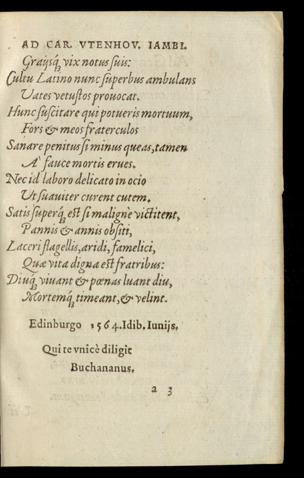 AD CAR. VTENHOV. IAMBI.
Graijsq́; vix notus suis:
Cultu Latino nunc superbus ambulans
Vates vetustos prouocat.
Hunc suscitare qui potueris mortuum,
Fors & meos fraterculos
Sanare penitus si minus queas, tamen
A' fauce mortis erues.
Nec id laboro delicato in ocio
Vt suauiter curent cutem.
Satis superq́; est si malignè victitent,
Pannis & annis obsiti,
Laceri flagellis, aridi, famelici,
Quæ vita digna est fratribus:
Diuq́; viuant & pœnas luant diu,
Mortemq́; timeant, & velint.
Edinburgo 1564. Idib. Iunijs.
Qui te vnicè diligit
Buchananus.
a 3